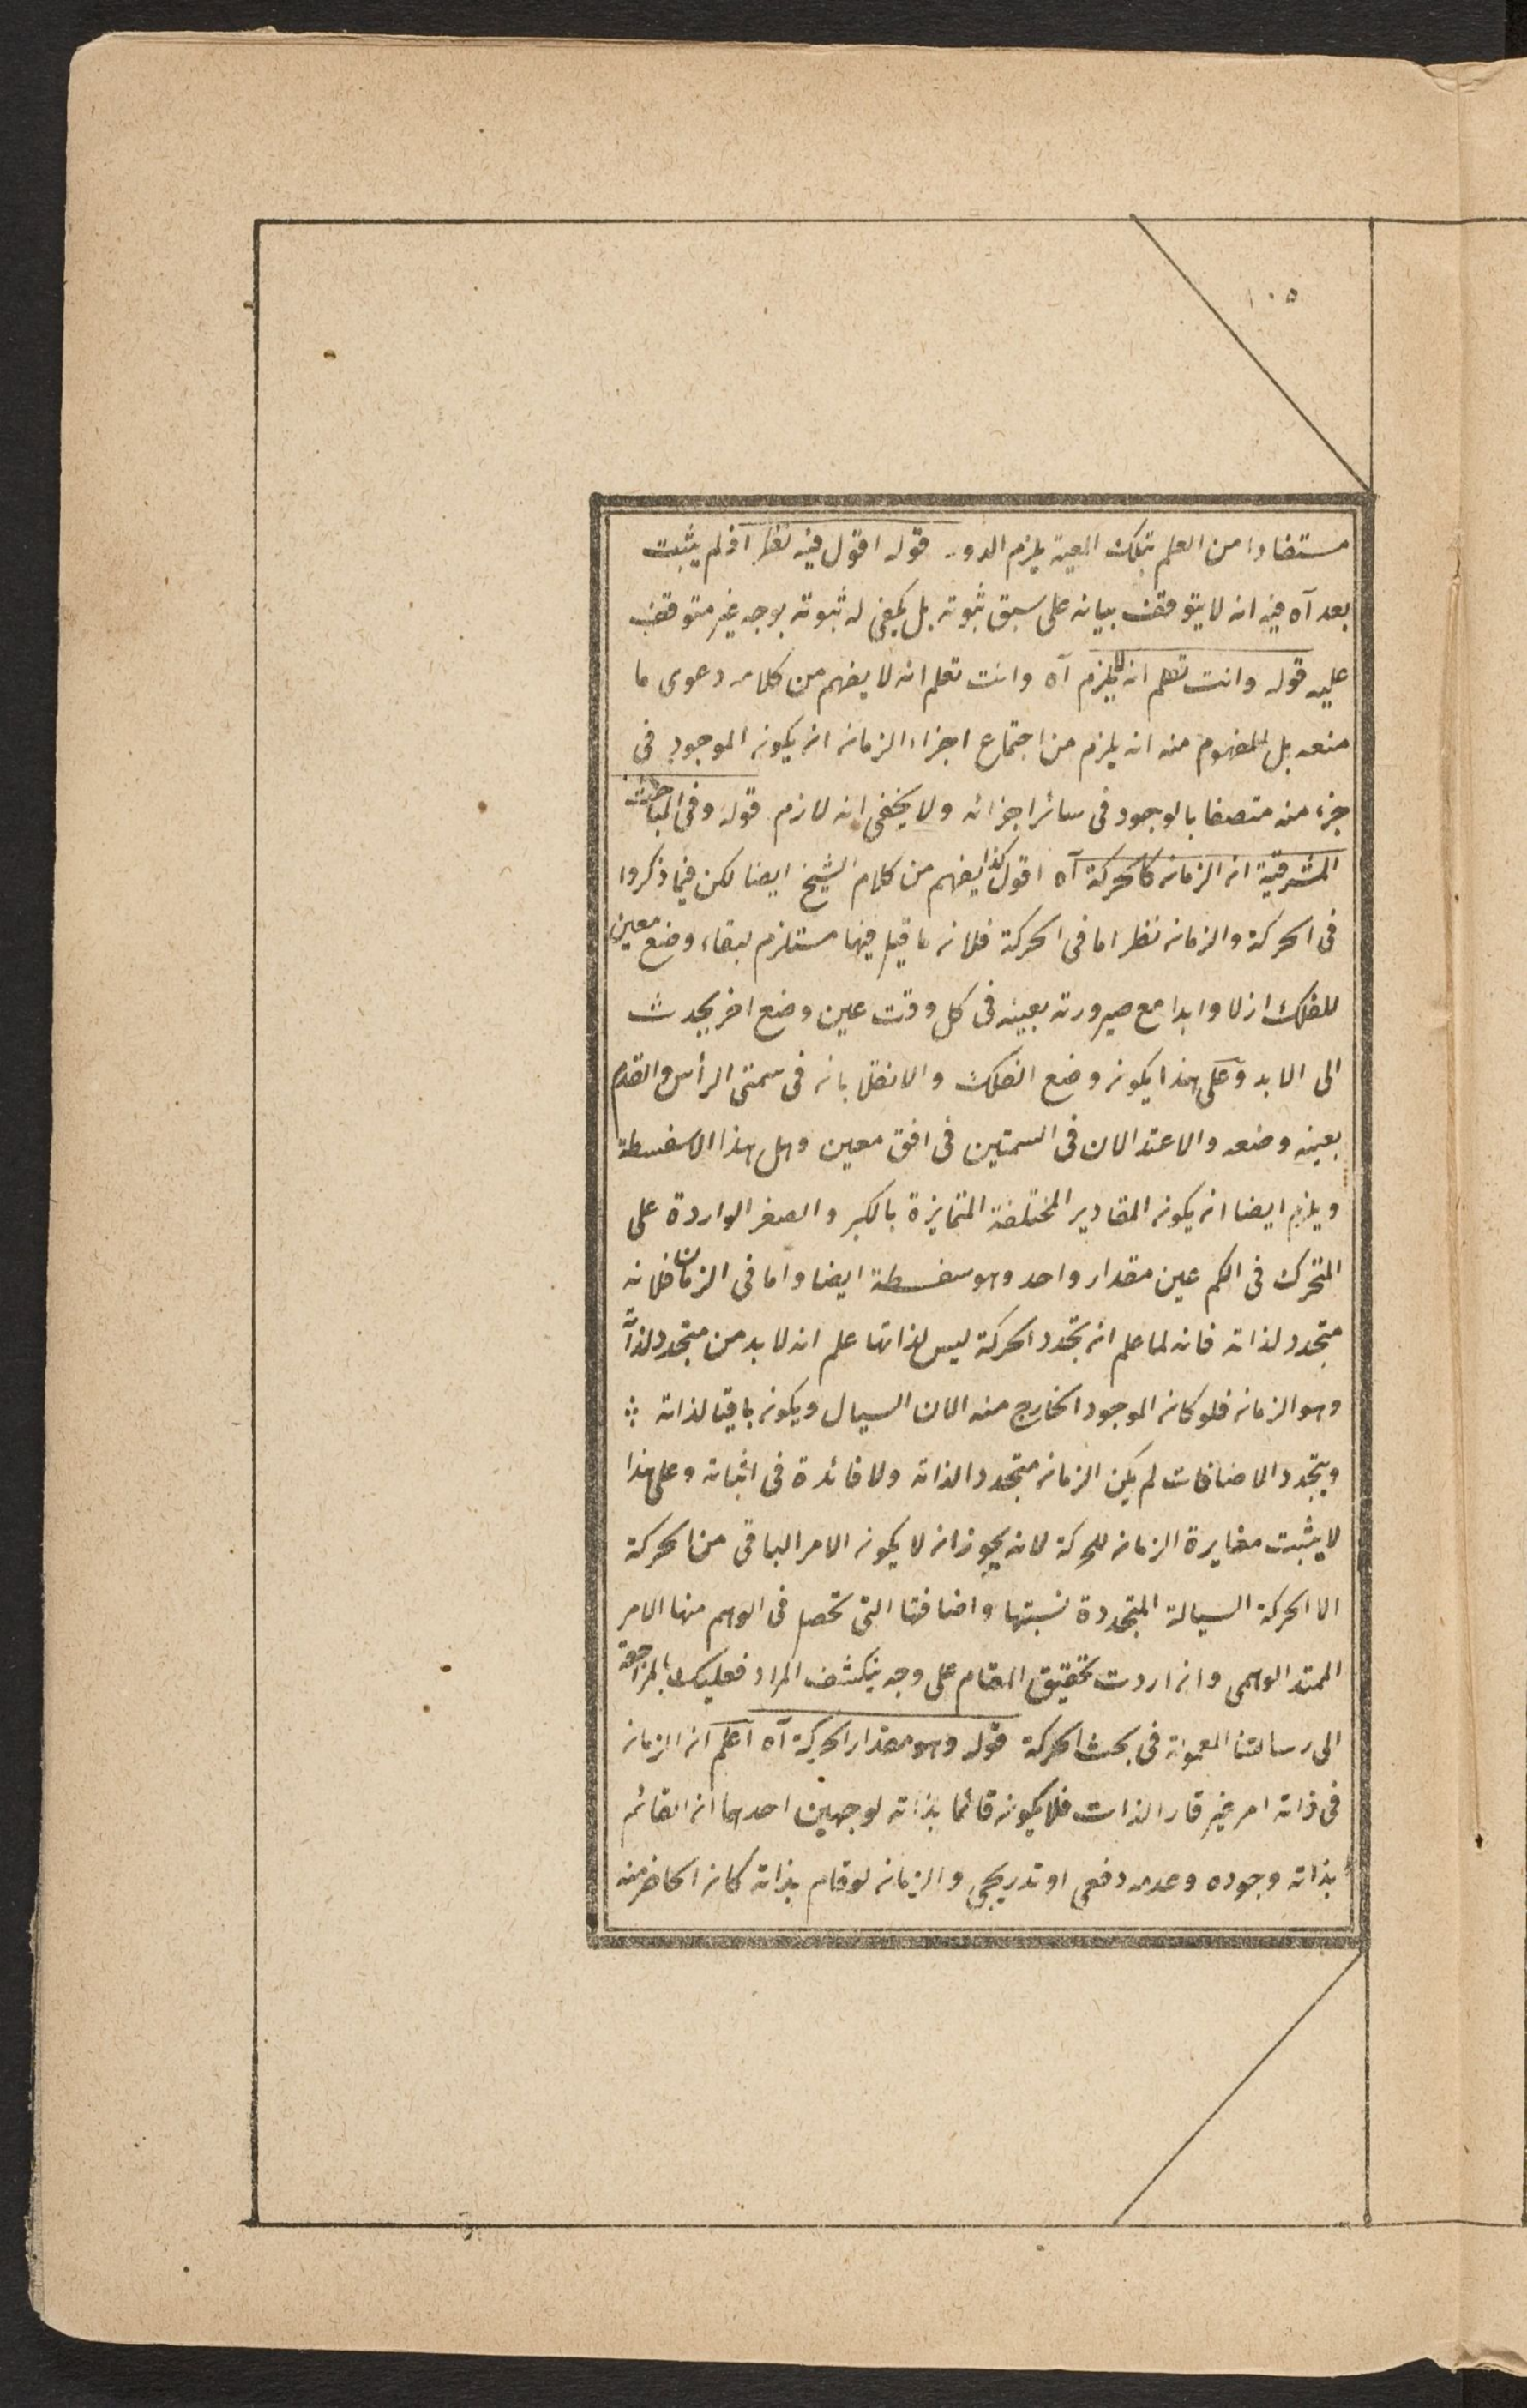 ١٠٥
مستفادا من العلم بتلك المعية يلزم الدور قوله اقول فيه نظر اذ لم يثبت
بعد آه فيه انه لا يتوقف بيانه على سبق ثبوته بل يكفى له ثبوته بوجه غير متوقف
عليه قوله وانت تعلم انه لا يلزم آه وانت تعلم انه لا يفهم من كلامه دعوى ما
منعه بل المفهوم منه انه يلزم من اجتماع اجزاء الزمان ان يكون الموجود فى
جزء منه متصفا بالوجود فى سائر اجزائه ولا يخفى انه لازم قوله وفى المباحث
المشرقية ان الزمان كالحركة آه اقول كذا يفهم من كلام الشيخ ايضا لكن فيما ذكروا
فى الحركة والزمان نظر اما فى الحركة فلان ما قيل فيها مستلزم لبقاء وضع معين
للفلك ازلا وابدا مع صيرورته بعينه فى كل وقت عين وضع اخر يحدث
الى الابد وعلى هذا يكون وضع الفلك والانقلابان فى سمتى الرأس والقدم
بعينه وضعه والاعتدالان فى السمتين فى افق معين وهل هذا الا سفسطة
ويلزم ايضا ان يكون المقادير المختلفة المتمايزة بالكبر والصغر الواردة على
المتحرك فى الكم عين مقدار واحد وهو سفسطة ايضا واما فى الزمان فلانه
متجدد لذاته فانه لما علم ان تجدد الحركة ليس لذاتها علم انه لا بد من متجدد لذاته
وهو الزمان فلو كان الموجود الخارج منه الان السيال ويكون باقيا لذاته
ويتجدد الاضافات لم يكن الزمان متجددا لذاته ولا فائدة فى اثباته وعلى هذا
لا يثبت مغايرة الزمان للحركة لانه يجوز ان لا يكون الامر الباقى من الحركة
الا الحركة السيالة المتجددة نسبتها واضافتها التى تحصل فى الوهم منها الامر
الممتد الوهمى وان اردت تحقيق المقام على وجه ينكشف المراد فعليك بالمراجعة
الى رسالتنا المعمولة فى بحث الحركة قوله وهو مقدار الحركة آه اعلم ان الزمان
فى ذاته امر غير قار الذات فلا يكون قائما بذاته لوجهين احدهما ان القائم
بذاته وجوده وعدمه دفعى او تدريجى والزمان لو قام بذاته كان الحاضر منه